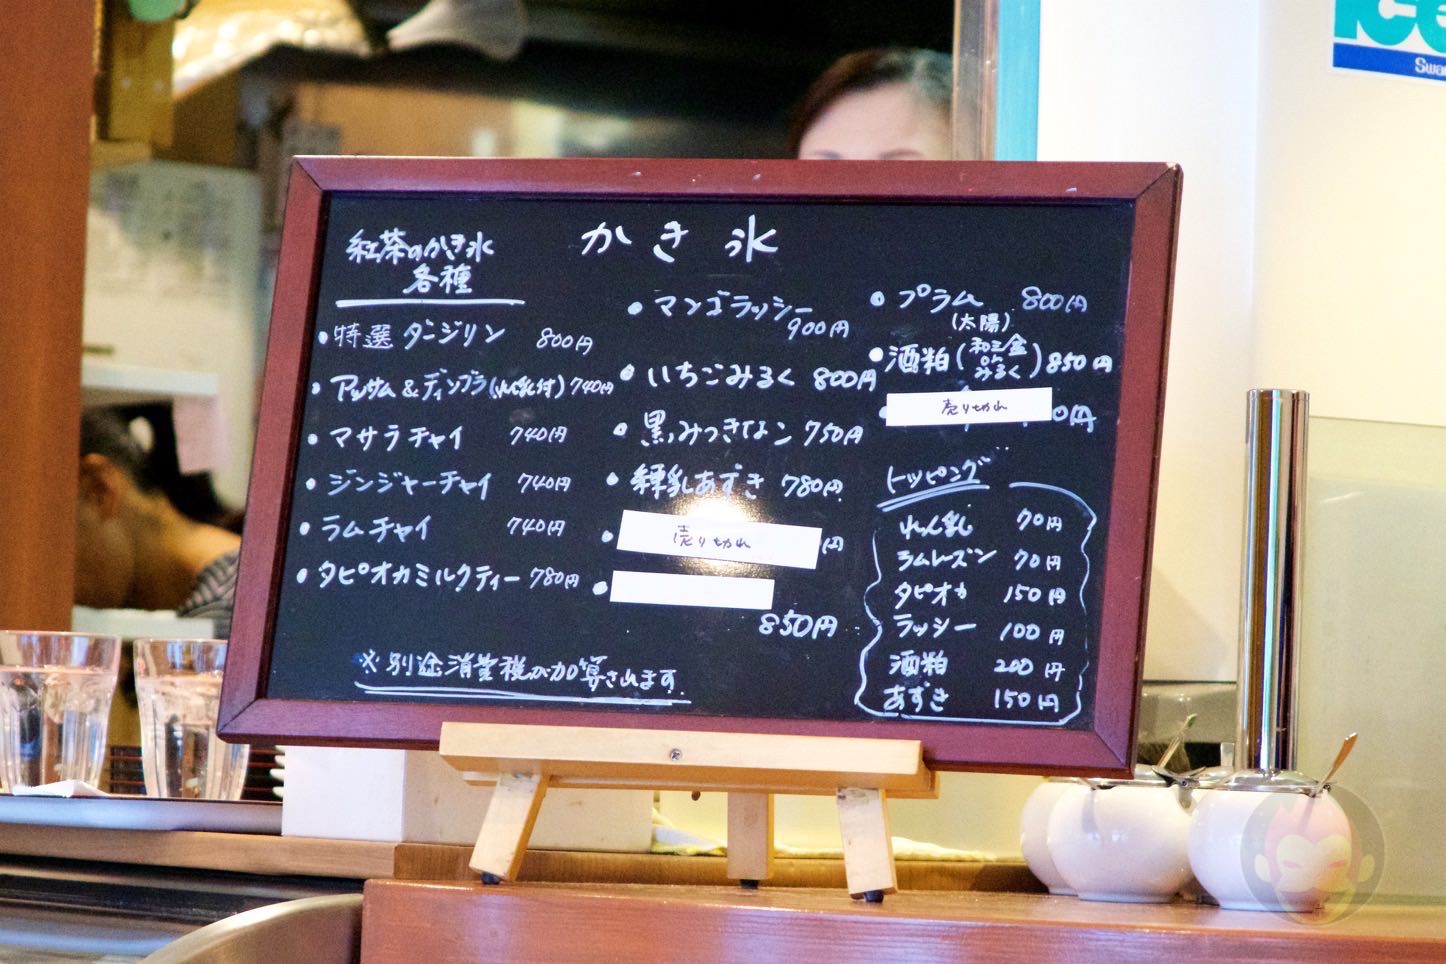 かき氷
紅茶のかき氷
各種
・特選 ダージリン 800円
・アッサム&ディンブラ(れん乳付) 740円
・マサラチャイ 740円
・ジンジャーチャイ 740円
・ラムチャイ 740円
・タピオカミルクティー 780円
※別途消費税が加算されます
・マンゴラッシー
900円
・いちごみるく 800円
・黒みつきなこ 750円
・練乳あずき 780円
・売り切れ 円
・
850円
・プラム 800円
(太陽)
・酒粕(和三盆 or みるく)850円
・売り切れ 0円
トッピング
れん乳 70円
ラムレーズン 70円
タピオカ 150円
ラッシー 100円
酒粕 200円
あずき 150円
ice
Swa